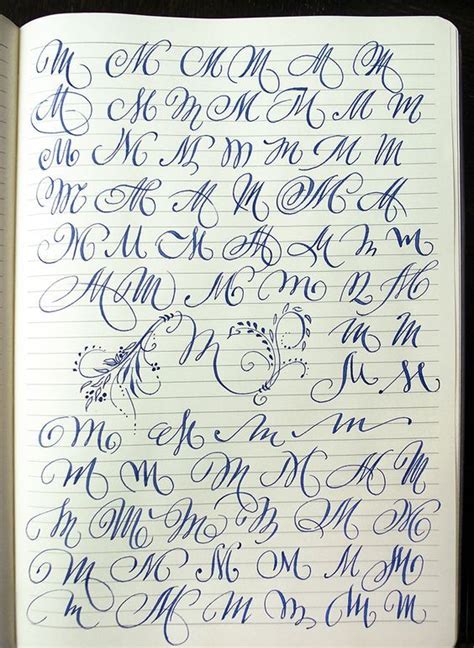 M M M M M M
M M M M M M M
M M M M M M M
M M M M M M
M M M M M M M
M M M M M M
M M M
M M
M M M M
M M M M M M M
M M M M M M M
M M M M M M M
M M M M M M